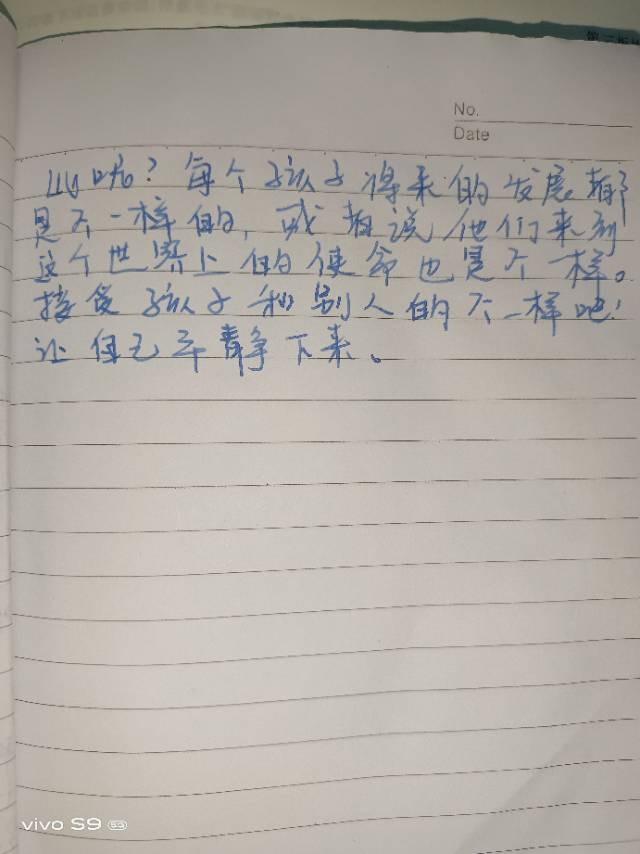 第二
No.
Date
呢？每个孩子将来的发展都
是不一样的，或者说他们来到
这个世界上的使命也是不一样。
接受孩子和别人的不一样吧！
让自己平静下来。
vivo S9 5G